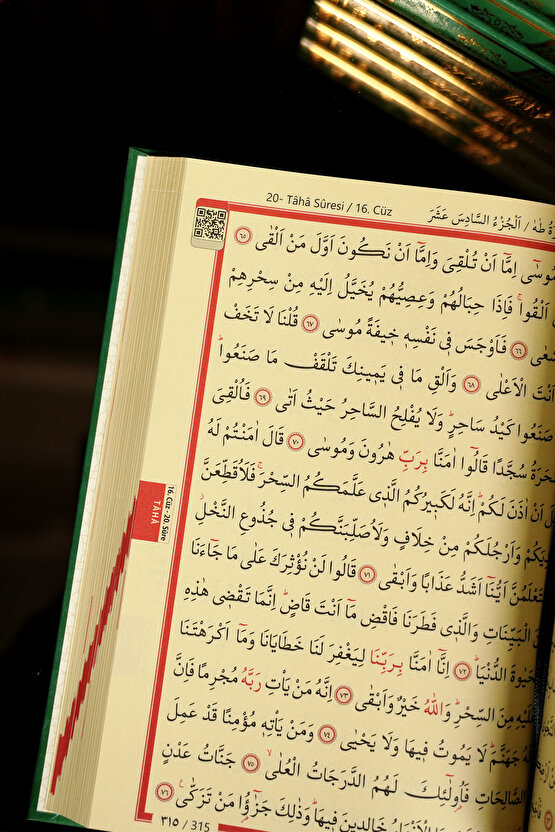 20- Tâhâ Sûresi / 16. Cüz
ةُ طٰهٰ / اَلْجُزْءُ السَّادِسَ عَشَرَ
مُوسٰٓى اِمَّٓا اَنْ تُلْقِيَ وَاِمَّٓا اَنْ نَكُونَ اَوَّلَ مَنْ اَلْقٰى ﴿٦٥﴾
اَلْقُواۚ فَاِذَا حِبَالُهُمْ وَعِصِيُّهُمْ يُخَيَّلُ اِلَيْهِ مِنْ سِحْرِهِمْ
﴿٦٦﴾ فَاَوْجَسَ فٖي نَفْسِهٖ خٖيفَةً مُوسٰى ﴿٦٧﴾ قُلْنَا لَا تَخَفْ
اَنْتَ الْاَعْلٰى ﴿٦٨﴾ وَاَلْقِ مَا فٖي يَمٖينِكَ تَلْقَفْ مَا صَنَعُواۜ
صَنَعُوا كَيْدُ سَاحِرٍۜ وَلَا يُفْلِحُ السَّاحِرُ حَيْثُ اَتٰى ﴿٦٩﴾ فَاُلْقِيَ
سُجَّدًا قَالُٓوا اٰمَنَّا بِرَبِّ هٰرُونَ وَمُوسٰى ﴿٧٠﴾ قَالَ اٰمَنْتُمْ لَهُ
اَنْ اٰذَنَ لَكُمْۜ اِنَّهُ لَكَبٖيرُكُمُ الَّذٖي عَلَّمَكُمُ السِّحْرَۚ فَلَاُقَطِّعَنَّ
وَاَرْجُلَكُمْ مِنْ خِلَافٍ وَلَاُصَلِّبَنَّكُمْ فٖي جُذُوعِ النَّخْلِۘ
اَيُّنَٓا اَشَدُّ عَذَابًا وَاَبْقٰى ﴿٧١﴾ قَالُوا لَنْ نُؤْثِرَكَ عَلٰى مَا جَٓاءَنَا
الْبَيِّنَاتِ وَالَّذٖي فَطَرَنَا فَاقْضِ مَٓا اَنْتَ قَاضٍۜ اِنَّمَا تَقْضٖي هٰذِهِ
الدُّنْيَاۜ ﴿٧٢﴾ اِنَّٓا اٰمَنَّا بِرَبِّنَا لِيَغْفِرَ لَنَا خَطَايَانَا وَمَٓا اَكْرَهْتَنَا
عَلَيْهِ مِنَ السِّحْرِۜ وَاللّٰهُ خَيْرٌ وَاَبْقٰى ﴿٧٣﴾ اِنَّهُ مَنْ يَأْتِ رَبَّهُ مُجْرِمًا فَاِنَّ
لَهُ جَهَنَّمَۜ لَا يَمُوتُ فٖيهَا وَلَا يَحْيٰى ﴿٧٤﴾ وَمَنْ يَأْتِهٖ مُؤْمِنًا قَدْ عَمِلَ
الصَّالِحَاتِ فَاُو۬لٰٓئِكَ لَهُمُ الدَّرَجَاتُ الْعُلٰىۙ ﴿٧٥﴾ جَنَّاتُ عَدْنٍ
الْاَنْهَارُ خَالِدٖينَ فٖيهَاۜ وَذٰلِكَ جَزٰٓؤُ۬ا مَنْ تَزَكّٰىۚ ﴿٧٦﴾
16. Cüz -20. Sûre
TÂHÂ
٣١٥ / 315